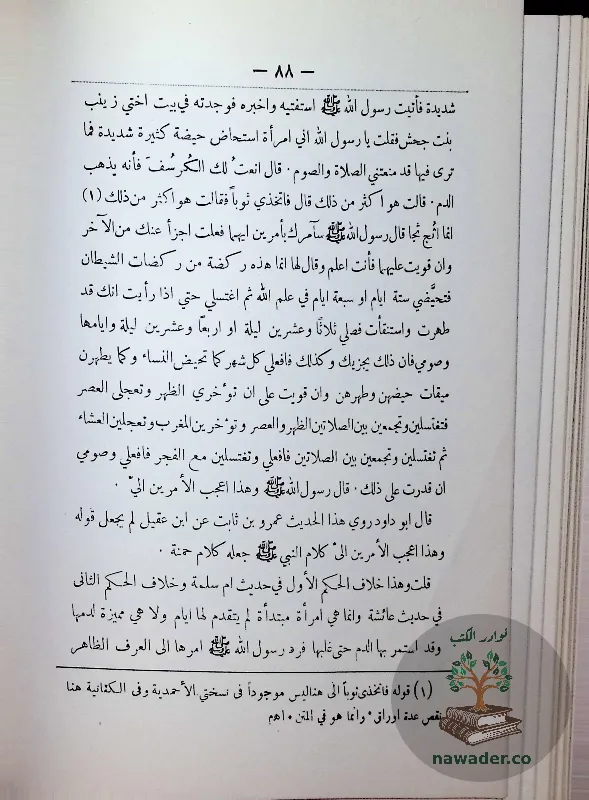 — ٨٨ —
شديدة فأتيت رسول الله ﷺ استفتيه واخبره فوجدته في بيت اختي زينب
بنت جحش فقلت يا رسول الله اني امرأة استحاض حيضة كثيرة شديدة فما
ترى فيها قد منعتني الصلاة والصوم . قال انعتُ لك الكُرسُفَ فأنه يذهب
الدم . قالت هو اكثر من ذلك قال فاتخذي ثوباً فقالت هو اكثر من ذلك (١)
انما اثج ثجا قال رسول الله ﷺ سآمرك بأمرين ايهما فعلت اجزأ عنك من الآخر
وان قويت عليهما فأنت اعلم وقال لها انما هذه ركضة من ركضات الشيطان
فتحيَّضي ستة ايام او سبعة ايام في علم الله ثم اغتسلي حتى اذا رأيت انك قد
طهرت واستنقأت فصلي ثلاثًا وعشرين ليلة او اربعًا وعشرين ليلة وايامها
وصومي فان ذلك يجزيك وكذلك فافعلي كل شهر كما تحيض النساء وكما يطهرن
ميقات حيضهن وطهرهن وان قويت على ان تؤخري الظهر وتعجلى العصر
فتغتسلين وتجمعين بين الصلاتين الظهر والعصر وتؤخرين المغرب وتعجلين العشاء
ثم تغتسلين وتجمعين بين الصلاتين فافعلي وتغتسلين مع الفجر فافعلي وصومي
ان قدرت على ذلك . قال رسول الله ﷺ وهذا اعجب الأمرين اليّ .
قال ابو داود روي هذا الحديث عمرو بن ثابت عن ابن عقيل لم يجعل قوله
وهذا اعجب الأمرين اليّ كلام النبي ﷺ جعله كلام حمنة .
قلت وهذا خلاف الحكم الأول في حديث ام سلمة وخلاف الحكم الثانى
في حديث عائشة وانما هي امرأة مبتدأة لم يتقدم لها ايام ولا هي مميزة لدمها
وقد استمر بها الدم حتى غلبها فرد رسول الله ﷺ امرها الى العرف الظاهر
(١) قوله فاتخذي ثوباً الى هنا ليس موجوداً فى نسختي الأحمدية وفى الكتانية هنا
نقص عدة اوراق . وانما هو في المتن . اهم
نوادر الكتب
nawader.co